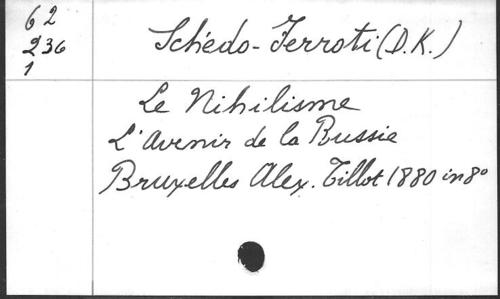 62
236
1
Schédo-Ferroti (D.K.)
Le Nihilisme
L'Avenir de la Russie
Bruxelles Alex. Tillot 1880 in 8°